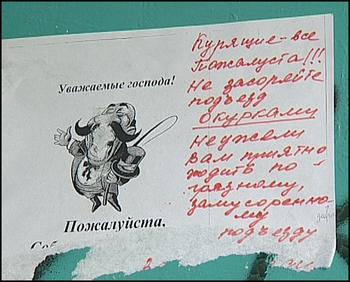 Уважаемые господа!
Пожалуйста,
Курящие-все
Пожалуста!!!
Не засоряйте
подъезд
окурками
Неужели
Вам приятно
ходить по
грязному,
замусоренно-
му
подъезду